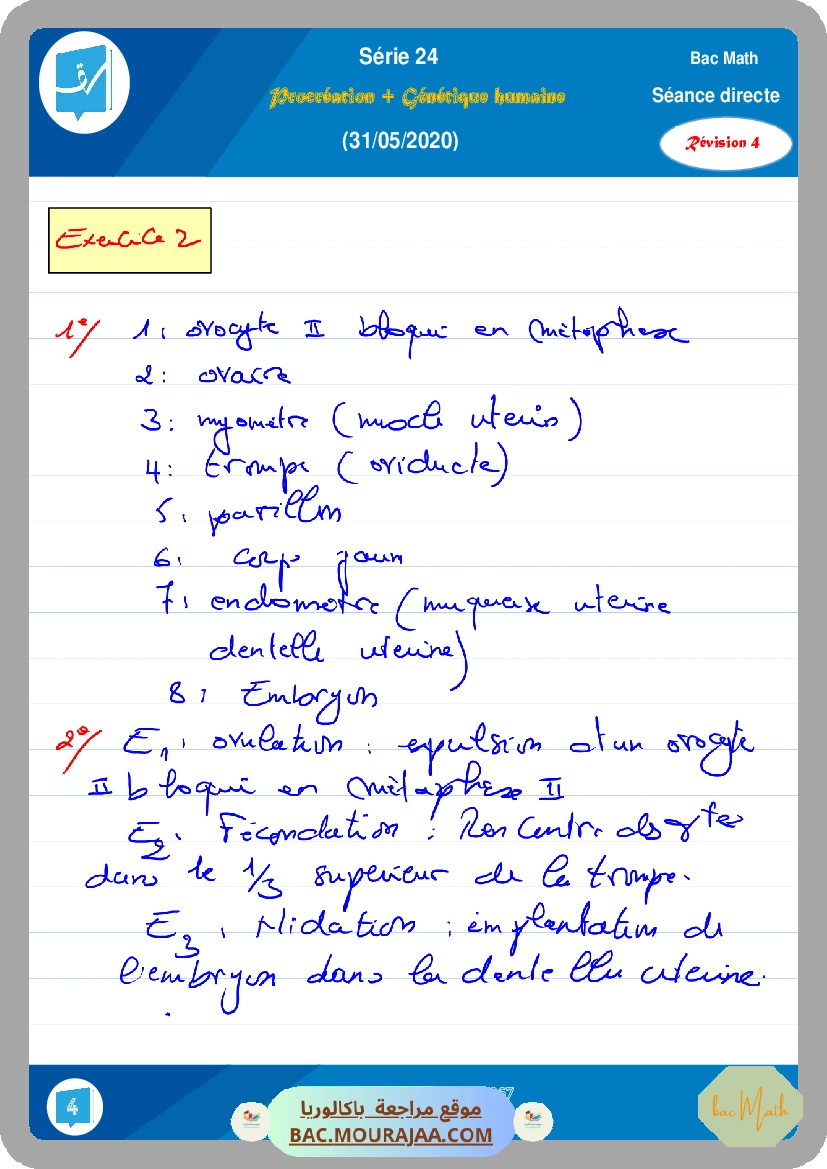 Série 24
Bac Math
Procréation + Génétique humaine
Séance directe
(31/05/2020)
Révision 4
Exercice 2
1°/ 1: ovocyte II bloqué en métaphase
2: ovaire
3: myomètre (muscle uterin)
4: trompe (oviducte)
5: pavillon
6: corps jaun
7: endomètre (muqueuse uterine
dentelle uterine)
8: Embryon
2°/ E1: ovulation: expulsion d'un ovocyte
II bloqué en métaphase II
E2: Fécondation: Rencontre des gtes
dans le 1/3 superieur de la trompe.
E3: Nidation: implantation de
l'embryon dans la dentelle uterine.
4
موقع مراجعة باكالوريا
BAC.MOURAJAA.COM
bac Math